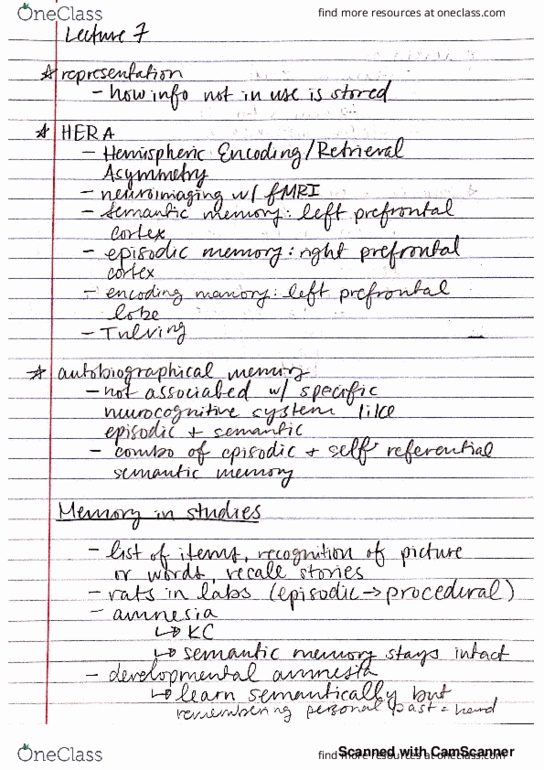 OneClass
find more resources at oneclass.com
Lecture 7
☆ representation
- how info not in use is stored
☆ HERA
- Hemispheric Encoding/Retrieval
Asymmetry
- neuroimaging w/ fMRI
- semantic memory: left prefrontal
cortex
- episodic memory: right prefrontal
cortex
- encoding memory: left prefrontal
lobe
- Tulving
☆ autobiographical memory
- not associated w/ specific
neurocognitive system like
episodic + semantic
- combo of episodic + self referential
semantic memory
Memory in studies
- list of items, recognition of picture
or words, recall stories
- rats in labs (episodic → procedural)
- amnesia
↳ KC
↳ semantic memory stays intact
- developmental amnesia
↳ learn semantically but
remembering personal past = hard
OneClass
find more resources at oneclass.com
Scanned with CamScanner